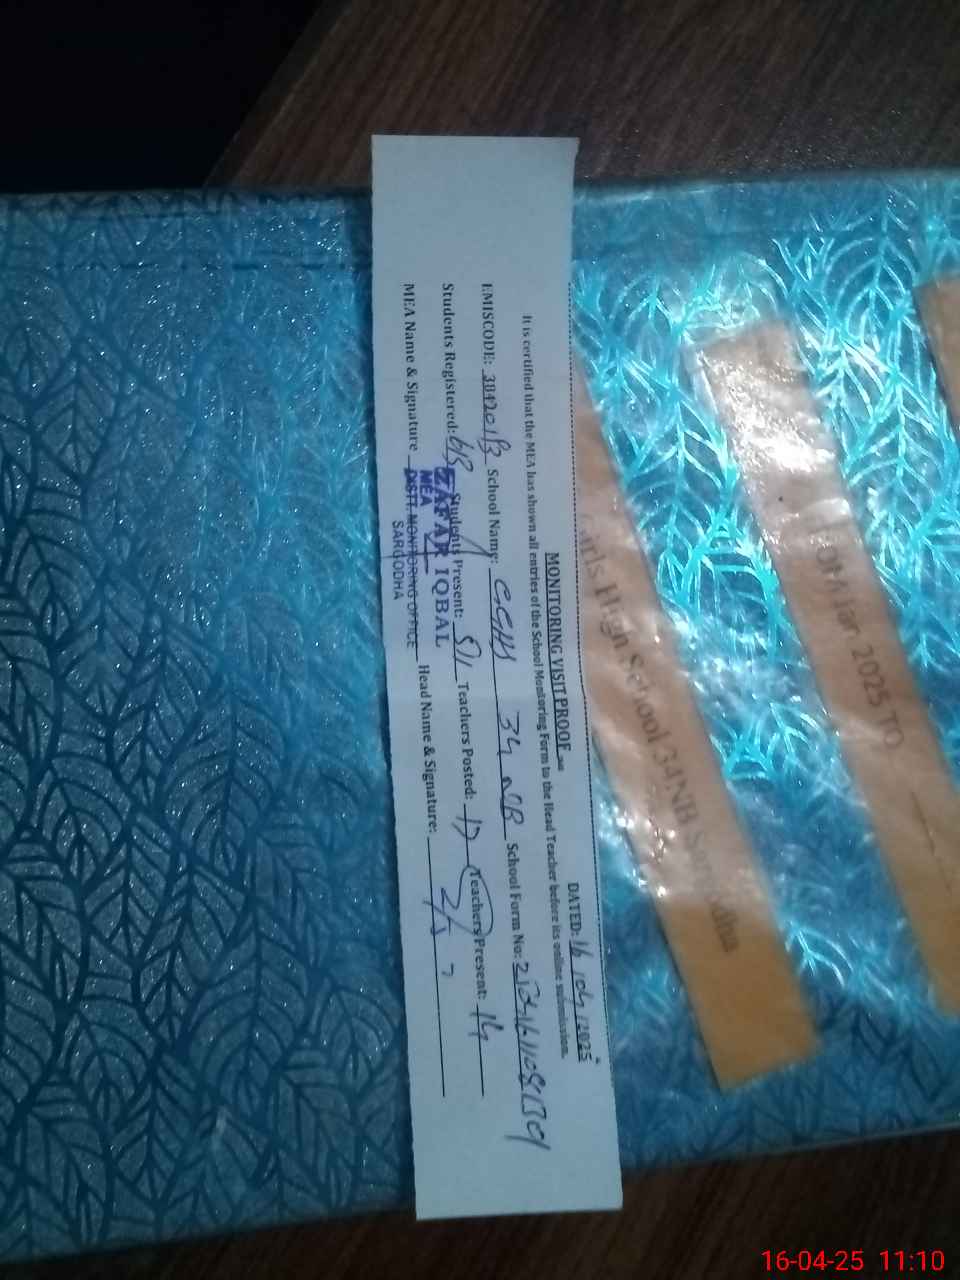 MONITORING VISIT PROOF
DATED: 16 / 04 / 2025
It is certified that the MEA has shown all entries of the School Monitoring Form to the Head Teacher before its online submission.
EMISCODE: School Name: GGHS 34 NB School Form No:
Students Registered: Students Present: 511 Teachers Posted: 17 Teachers Present: 14
MEA Name & Signature Head Name & Signature:
ZAFAR IQBAL
MEA
DISTT. MONITORING OFFICE
SARGODHA
Girls High School 34NB Sargodha
2025 TO
16-04-25 11:10